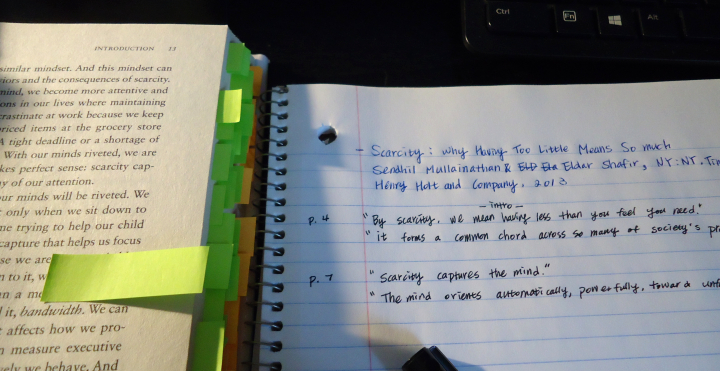 INTRODUCTION 13
similar mindset. And this mindset can
and the consequences of scarcity.
mind, we become more attentive and
in our lives where maintaining
at work because we keep
priced items at the grocery store
A tight deadline or a shortage of
With our minds riveted, we are
perfect sense: scarcity cap-
of our attention.
our minds will be riveted. We
only when we sit down to
trying to help our child
capture that helps us focus
se we are
to it, w
a me
it, bandwidth. We can
affects how we pro-
measure executive
we behave. And
Ctrl
Fn
Alt
- Scarcity: Why Having Too Little Means So much
Sendhil Mullainathan & Eldar Shafir, NY: NY. Tim
Henry Holt and Company. 2013
- intro -
p. 4 "By scarcity, we mean having less than you feel you need."
"it forms a common chord across so many of society's pr
p. 7 "Scarcity captures the mind."
"The mind orients automatically, powerfully, toward unf